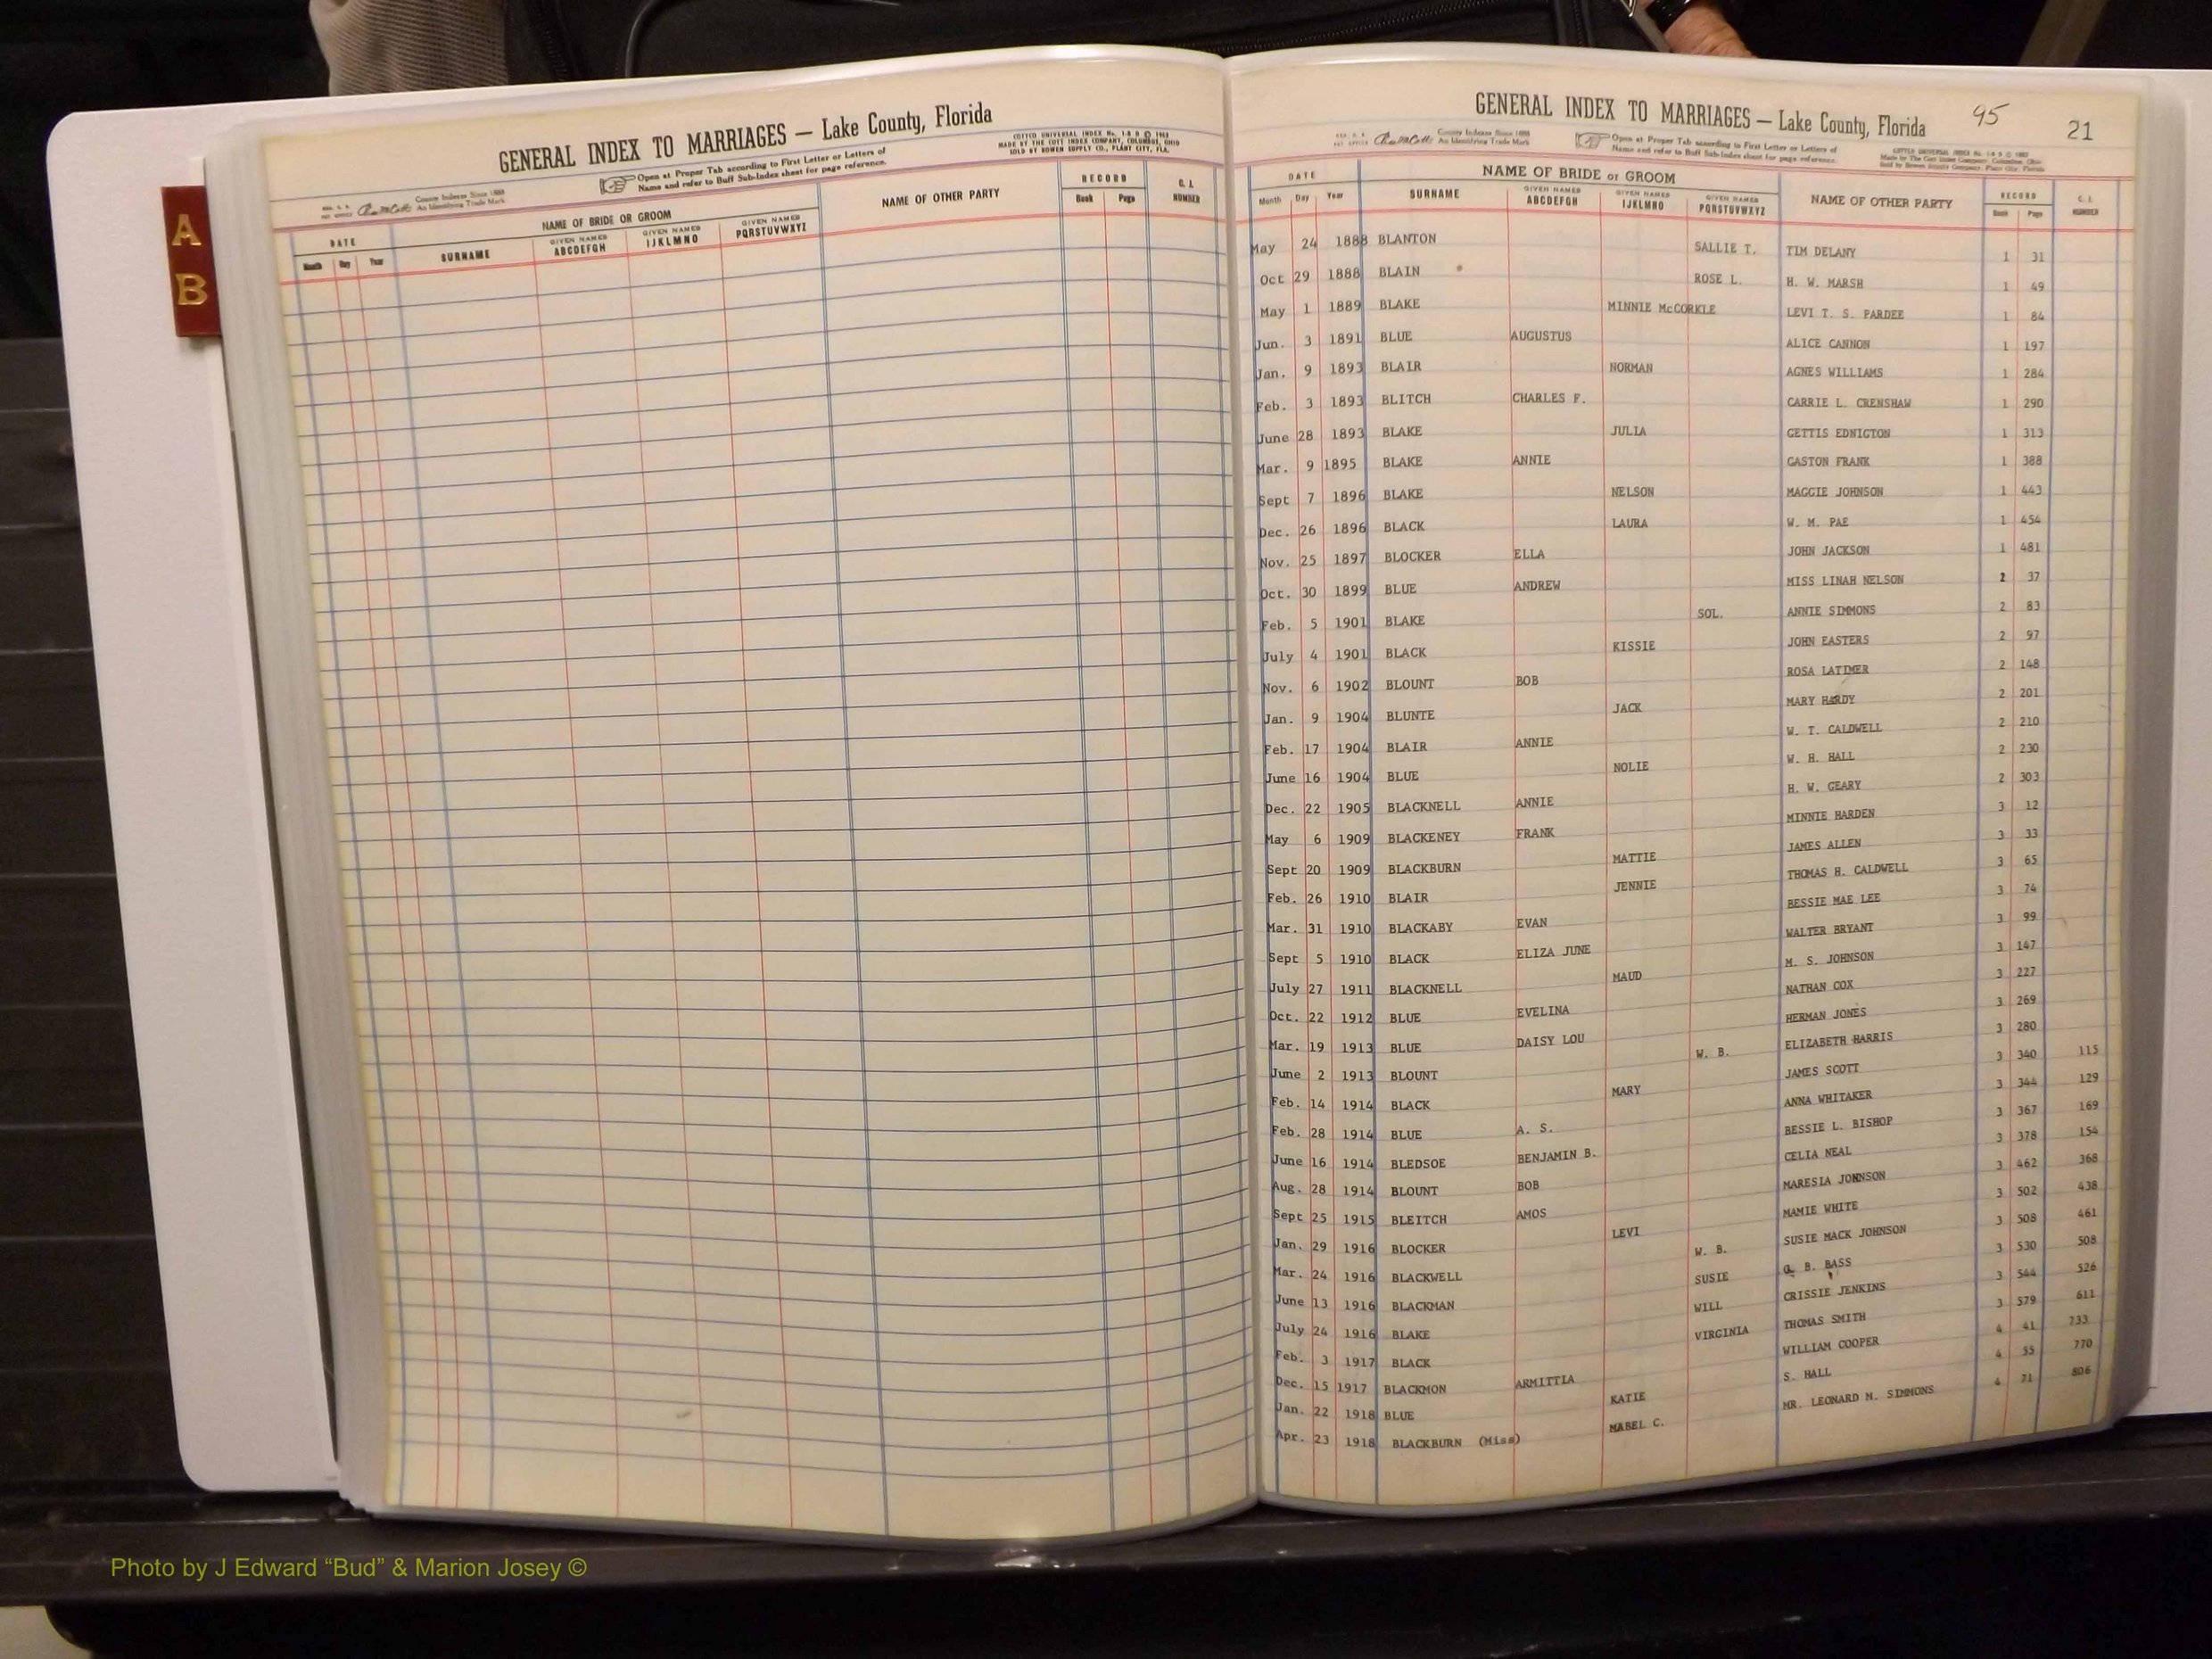 A
B
GENERAL INDEX TO MARRIAGES — Lake County, Florida
COTTCO UNIVERSAL INDEX No. 1-8 D © 1963
MADE BY THE COTT INDEX COMPANY, COLUMBUS, OHIO
SOLD BY BOWEN SUPPLY CO., PLANT CITY, FLA.
County Indexes Since 1888
An Identifying Trade Mark
Open at Proper Tab according to First Letter or Letters of
Name and refer to Buff Sub-Index sheet for page reference.
DATE NAME OF BRIDE OR GROOM NAME OF OTHER PARTY RECORD C. I. NUMBER
Month Day Year SURNAME GIVEN NAMES ABCDEFGH GIVEN NAMES IJKLMNO GIVEN NAMES PQRSTUVWXYZ Book Page
GENERAL INDEX TO MARRIAGES — Lake County, Florida
95
21
County Indexes Since 1888
An Identifying Trade Mark
Open at Proper Tab according to First Letter or Letters of
Name and refer to Buff Sub-Index sheet for page reference.
DATE NAME OF BRIDE or GROOM NAME OF OTHER PARTY RECORD C. I. NUMBER
Month Day Year SURNAME GIVEN NAMES ABCDEFGH GIVEN NAMES IJKLMNO GIVEN NAMES PQRSTUVWXYZ Book Page
May 24 1888 BLANTON SALLIE T. TIM DELANY 1 31
Oct 29 1888 BLAIN ROSE L. H. W. MARSH 1 49
May 1 1889 BLAKE MINNIE McCORKLE LEVI T. S. PARDEE 1 84
Jun. 3 1891 BLUE AUGUSTUS ALICE CANNON 1 197
Jan. 9 1893 BLAIR NORMAN AGNES WILLIAMS 1 284
Feb. 3 1893 BLITCH CHARLES F. CARRIE L. CRENSHAW 1 290
June 28 1893 BLAKE JULIA GETTIS EDNIGTON 1 313
Mar. 9 1895 BLAKE ANNIE GASTON FRANK 1 388
Sept 7 1896 BLAKE NELSON MAGGIE JOHNSON 1 443
Dec. 26 1896 BLACK LAURA W. M. PAE 1 454
Nov. 25 1897 BLOCKER ELLA JOHN JACKSON 1 481
Oct. 30 1899 BLUE ANDREW MISS LINAH NELSON 2 37
Feb. 5 1901 BLAKE SOL. ANNIE SIMMONS 2 83
July 4 1901 BLACK KISSIE JOHN EASTERS 2 97
Nov. 6 1902 BLOUNT BOB ROSA LATIMER 2 148
Jan. 9 1904 BLUNTE JACK MARY HARDY 2 201
Feb. 17 1904 BLAIR ANNIE W. T. CALDWELL 2 210
June 16 1904 BLUE NOLIE W. H. HALL 2 230
Dec. 22 1905 BLACKNELL ANNIE H. W. GEARY 2 303
May 6 1909 BLACKENEY FRANK MINNIE HARDEN 3 12
Sept 20 1909 BLACKBURN MATTIE JAMES ALLEN 3 33
Feb. 26 1910 BLAIR JENNIE THOMAS H. CALDWELL 3 65
Mar. 31 1910 BLACKABY EVAN BESSIE MAE LEE 3 74
Sept 5 1910 BLACK ELIZA JUNE WALTER BRYANT 3 99
July 27 1911 BLACKNELL MAUD M. S. JOHNSON 3 147
Oct. 22 1912 BLUE EVELINA NATHAN COX 3 227
Mar. 19 1913 BLUE DAISY LOU HERMAN JONES 3 269
June 2 1913 BLOUNT W. B. ELIZABETH HARRIS 3 280
Feb. 14 1914 BLACK MARY JAMES SCOTT 3 340 115
Feb. 28 1914 BLUE A. S. ANNA WHITAKER 3 344 129
June 16 1914 BLEDSOE BENJAMIN B. BESSIE L. BISHOP 3 367 169
Aug. 28 1914 BLOUNT BOB CELIA NEAL 3 378 154
Sept 25 1915 BLEITCH AMOS MARESIA JOHNSON 3 462 368
Jan. 29 1916 BLOCKER LEVI MAMIE WHITE 3 502 438
Mar. 24 1916 BLACKWELL W. B. SUSIE MACK JOHNSON 3 508 461
June 13 1916 BLACKMAN SUSIE a. B. BASS 3 530 508
July 24 1916 BLAKE WILL CRISSIE JENKINS 3 544 526
Feb. 3 1917 BLACK VIRGINIA THOMAS SMITH 3 579 611
Dec. 15 1917 BLACKMON ARMITTIA WILLIAM COOPER 4 41 733
Jan. 22 1918 BLUE KATIE S. HALL 4 55 770
Apr. 23 1918 BLACKBURN (Miss) MABEL C. MR. LEONARD M. SIMMONS 4 71 806
Photo by J Edward “Bud” & Marion Josey ©